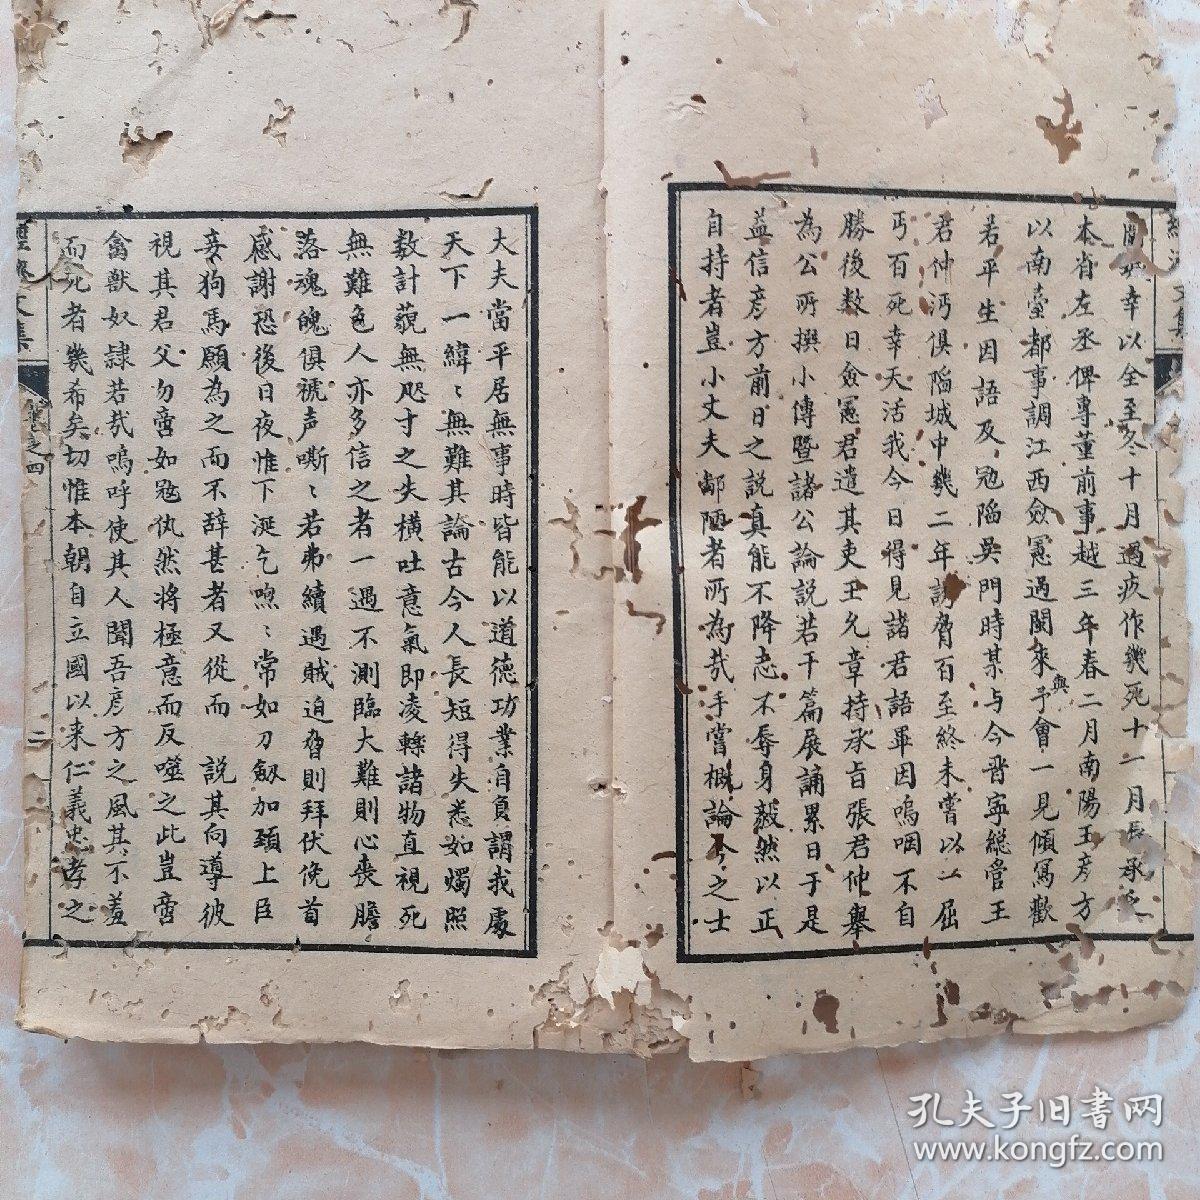 幸以全至冬十月過疫作幾死十一月
本省左丞俾專董前事越三年春二月南陽王彦方
以南臺都事調江西僉憲過閩來予會一見傾寫歡
與
若平生因語及冦陷吳門時某与今晋寧緫管王
君仲沔俱陷城中幾二年誘脅百至終未嘗以一屈
丐百死幸天活我今日得見諸君語畢因嗚咽不自
勝後数日僉憲君遣其吏王允章持承旨張君仲舉
為公所撰小傳暨諸公論説若干篇展誦累日于是
益信彦方前日之説真能不降志不辱身毅然以正
自持者豈小丈夫鄙陋者所為㢤手嘗概論今之士
大夫當平居無事時皆能以道德功業自負謂我處
天下一緯〻無難其論古今人長短得失悉如燭照
数計藐無咫寸之失横吐意氣即凌轢諸物直視死
無難色人亦多信之者一遇不測臨大難則心喪膽
落魂魄俱禠声嘶〻若弗續遇賊迫脅則拜伏俛首
感謝恐後日夜惟下涎乞喣〻常如刀劔加頚上臣
妾狗馬願為之而不辞甚者又從而 説其向導彼
視其君父勿啻如冦仇然將極意而反噬之此豈啻
禽獸奴隷若㢤嗚呼使其人聞吾彦方之風其不羞
而死者幾希矣切惟本朝自立國以来仁義忠孝之
文集
卷之四
二
孔夫子旧书网
www.kongfz.com